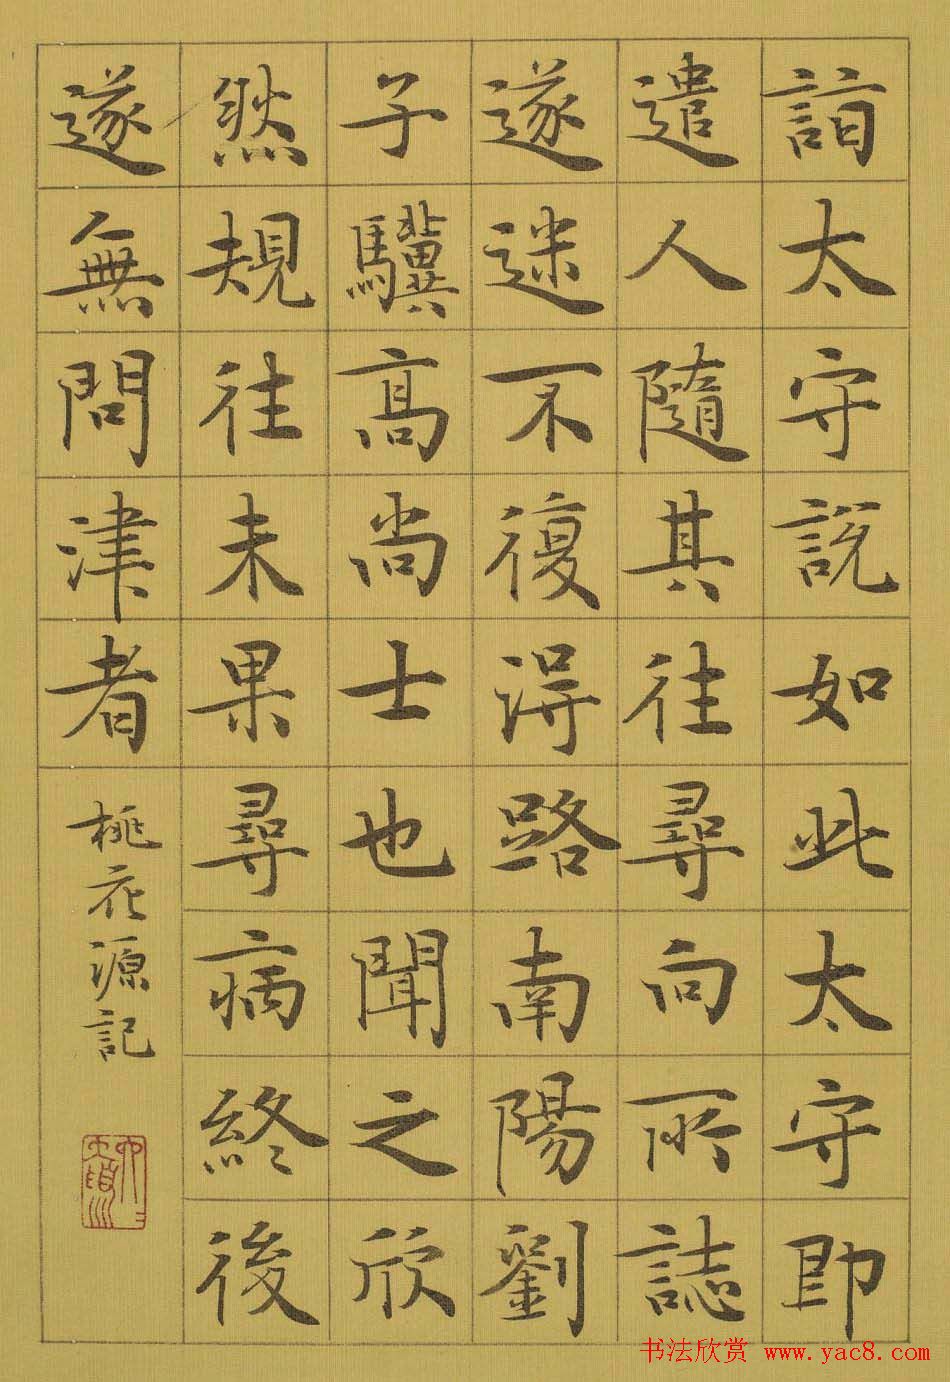 詣太守說如此太守即
遣人隨其往尋向所誌
遂迷不復得路南陽劉
子驥高尚士也聞之欣
然規往未果尋病終後
遂無問津者
桃花源記
书法欣赏 www.yac8.com